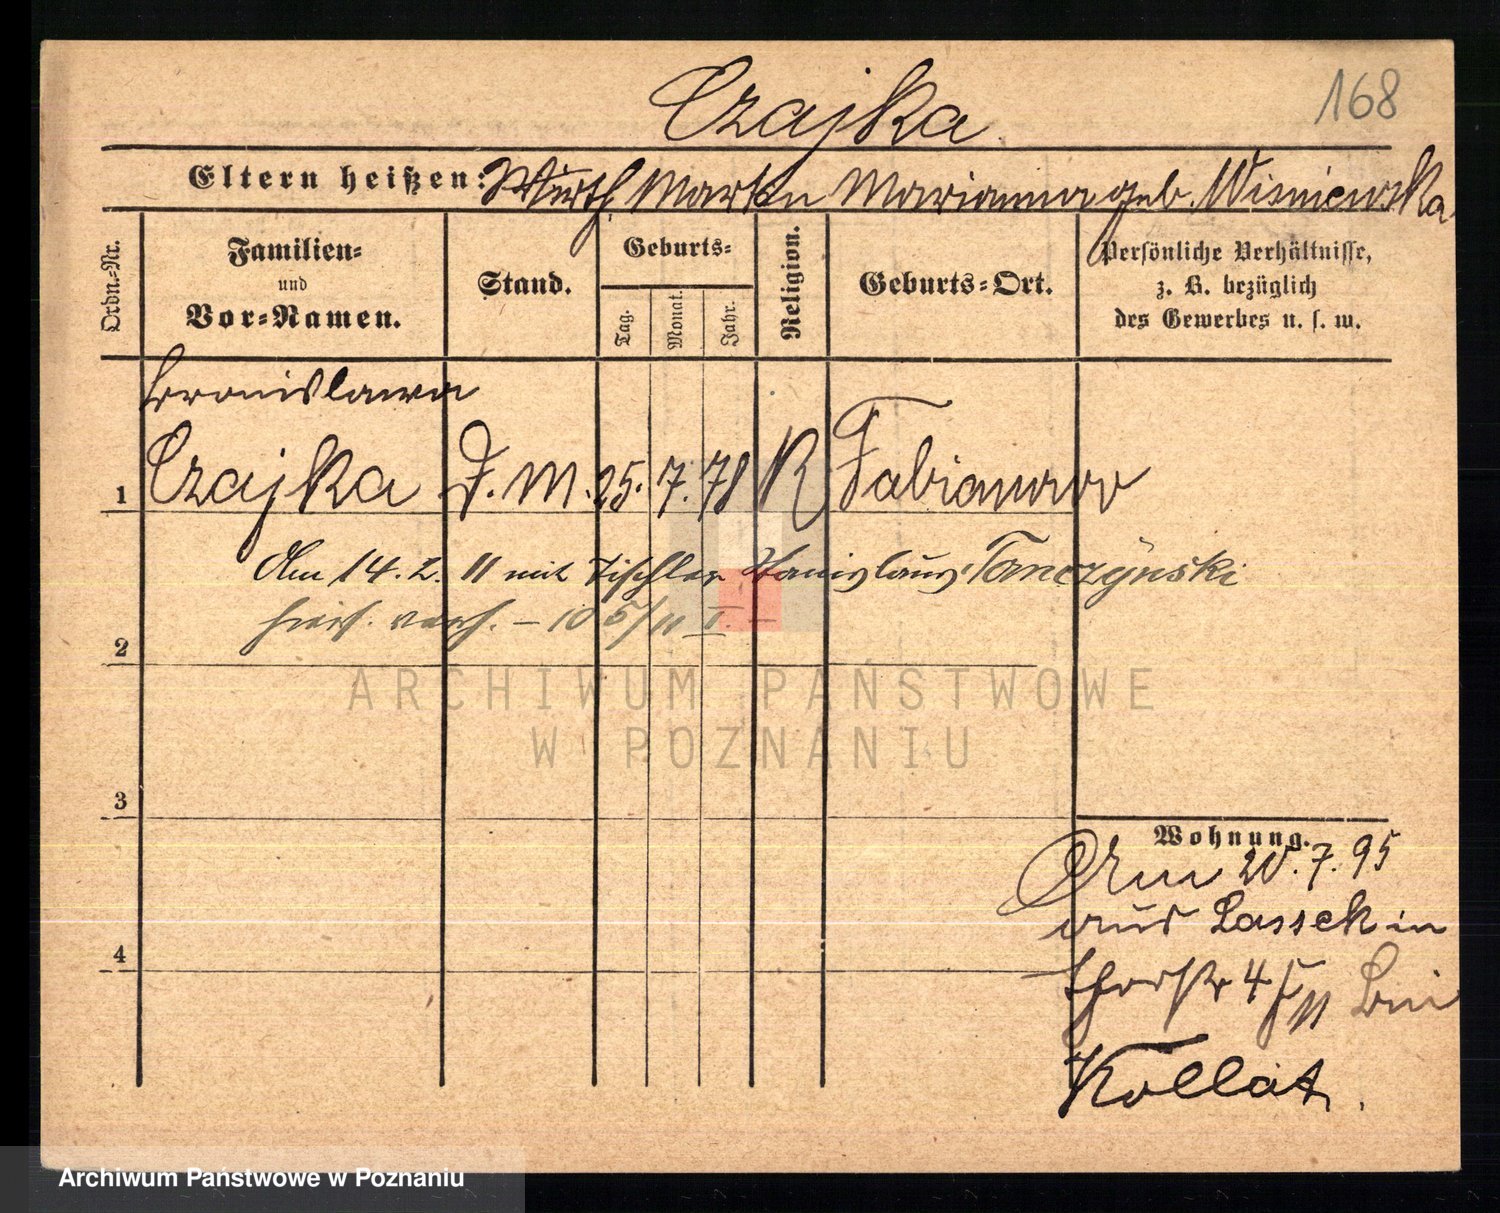 Czajka
168
Eltern heißen: Wirth Martin Marianna geb. Wisniewska
Ordn.=Nr.
Familien=
und
Vor=Namen.
Stand.
Geburts=
Tag.
Monat.
Jahr.
Religion.
Geburts=Ort.
Persönliche Verhältnisse,
z. B. bezüglich
des Gewerbes u. s. w.
Bronislawa
1 Czajka D. M. 25. 7. 78 K Fabianowo
Am 14. 2. 11 mit Tischler Stanislaus Tonczynski
hier verh. – 105/11 I. –
2
3
4
Wohnung.
Am 20.7.95
aus Lassek in
4 11 bei
Kollat.
ARCHIWUM PAŃSTWOWE
W POZNANIU
Archiwum Państwowe w Poznaniu